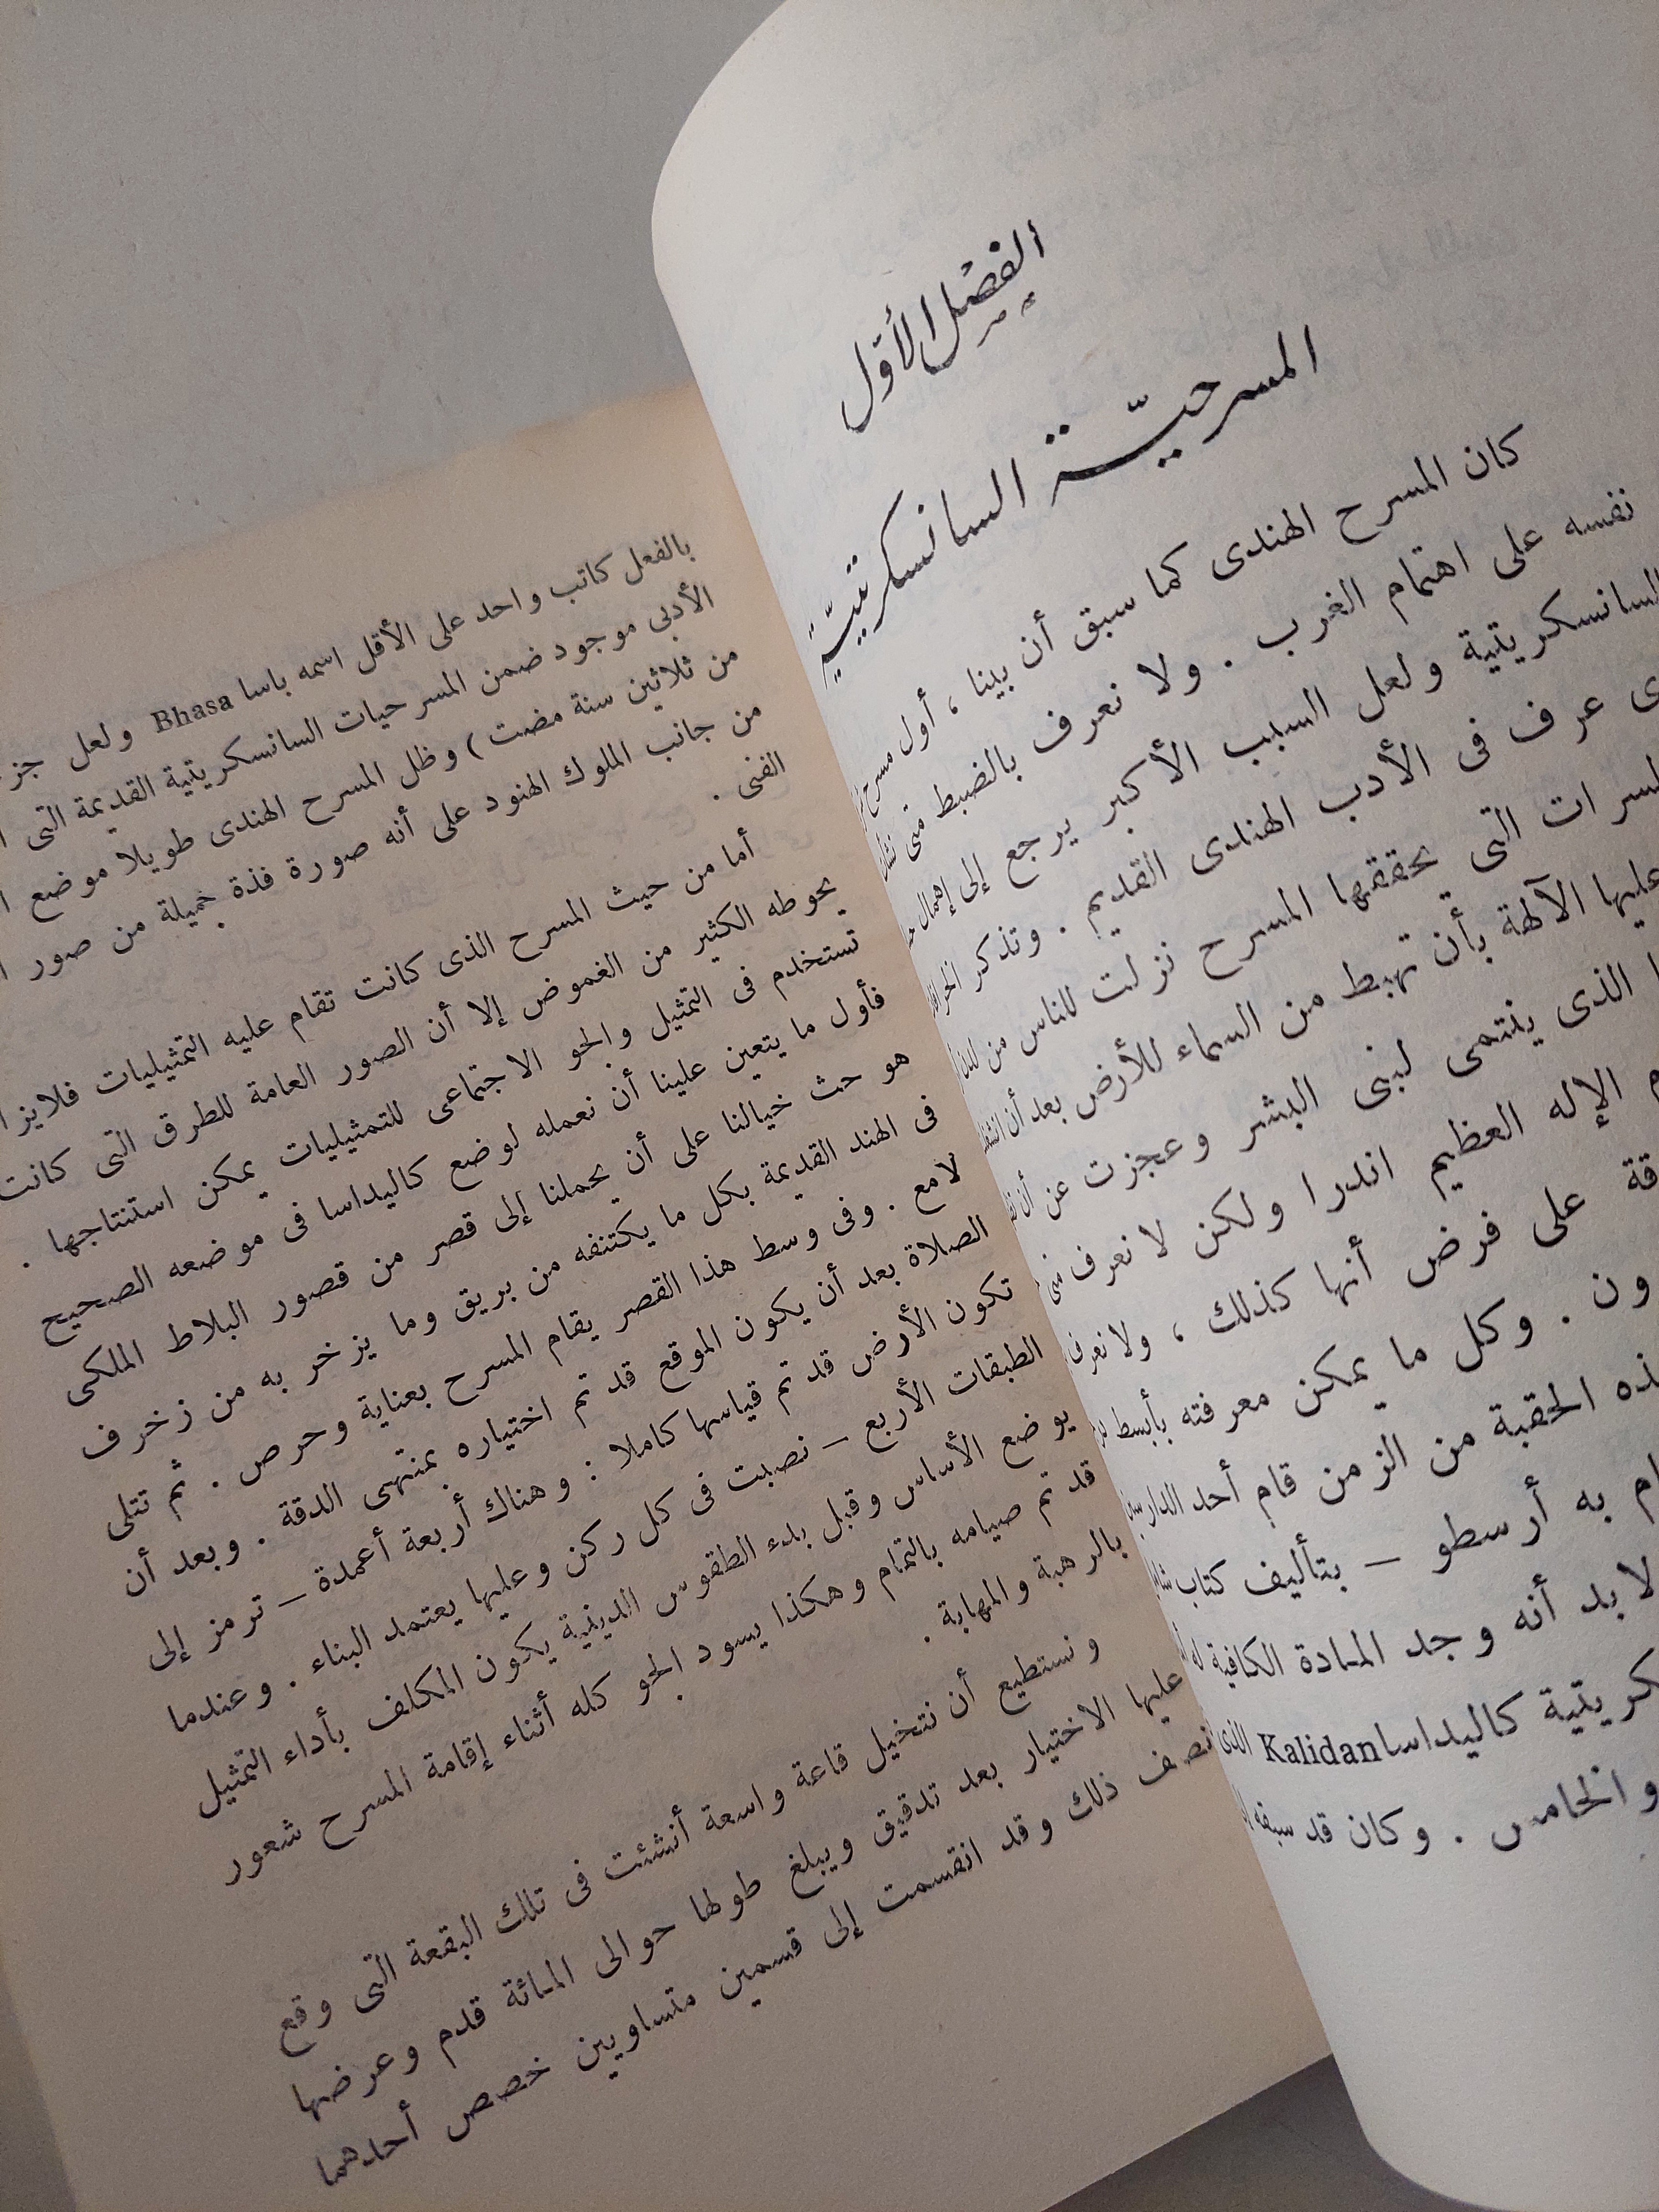 الفصل الأول
المسرحيّة السانسكريتيّة
كان المسرح الهندى كما سبق أن بينا ، أول مسرح
نفسه على اهتمام الغرب . ولا نعرف بالضبط متى
السانسكريتية ولعل السبب الأكبر يرجع إلى إهمال
عرف فى الأدب الهندى القديم . وتذكر
التى يحققها المسرح نزلت للناس من
عليها الآلهة بأن تهبط من السماء للأرض بعد أن
الذى ينتمى لبنى البشر وعجزت عن أن
الإله العظيم اندرا ولكن لا نعرف
على فرض أنها كذلك ، ولا نعرف
ون . وكل ما يمكن معرفته بأبسط
الحقبة من الزمن قام أحد
به أرسطو – بتأليف كتاب
لابد أنه وجد المادة الكافية
كاليداسا Kalidan الذى
والخامس . وكان قد سبقه
بالفعل كاتب واحد على الأقل اسمه باسا Bhasa ولعل
الأدبى موجود ضمن المسرحيات السانسكريتية القديمة التى
من ثلاثين سنة مضت ) وظل المسرح الهندى طويلا موضع
من جانب الملوك الهنود على أنه صورة فذة جميلة من صور
الفنى .
أما من حيث المسرح الذى كانت تقام عليه التمثيليات
يحوطه الكثير من الغموض إلا أن الصور العامة للطرق التى كانت
تستخدم فى التمثيل والجو الاجتماعى للتمثيليات يمكن استنتاجها .
فأول ما يتعين علينا أن نعمله لوضع كاليداسا فى موضعه الصحيح
هو حث خيالنا على أن يحملنا إلى قصر من قصور البلاط الملكى
فى الهند القديمة بكل ما يكتنفه من بريق وما يزخر به من زخرف
لامع . وفى وسط هذا القصر يقام المسرح بعناية وحرص . ثم تتلى
الصلاة بعد أن يكون الموقع قد تم اختياره بمنتهى الدقة . وبعد أن
تكون الأرض قد تم قياسها كاملا : وهناك أربعة أعمدة – ترمز إلى
الطبقات الأربع – نصبت فى كل ركن وعليها يعتمد البناء . وعندما
يوضع الأساس وقبل بدء الطقوس الدينية يكون المكلف بأداء التمثيل
قد تم صيامه بالتمام وهكذا يسود الجو كله أثناء إقامة المسرح شعور
بالرهبة والمهابة .
ونستطيع أن نتخيل قاعة واسعة أنشئت فى تلك البقعة التى وقع
عليها الاختيار بعد تدقيق ويبلغ طولها حوالى المائة قدم وعرضها
نصف ذلك وقد انقسمت إلى قسمين متساويين خصص أحدهما